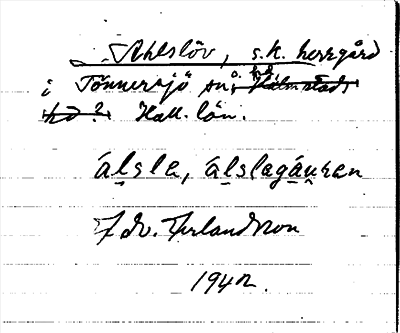 Ahlslöv, s.k. herrgård
i Tönnersjö sn, o. hd Halmstads
hd? Hall. län.
álsle, álslagáu̯ren
F. Dr. Erlandsson
1942.